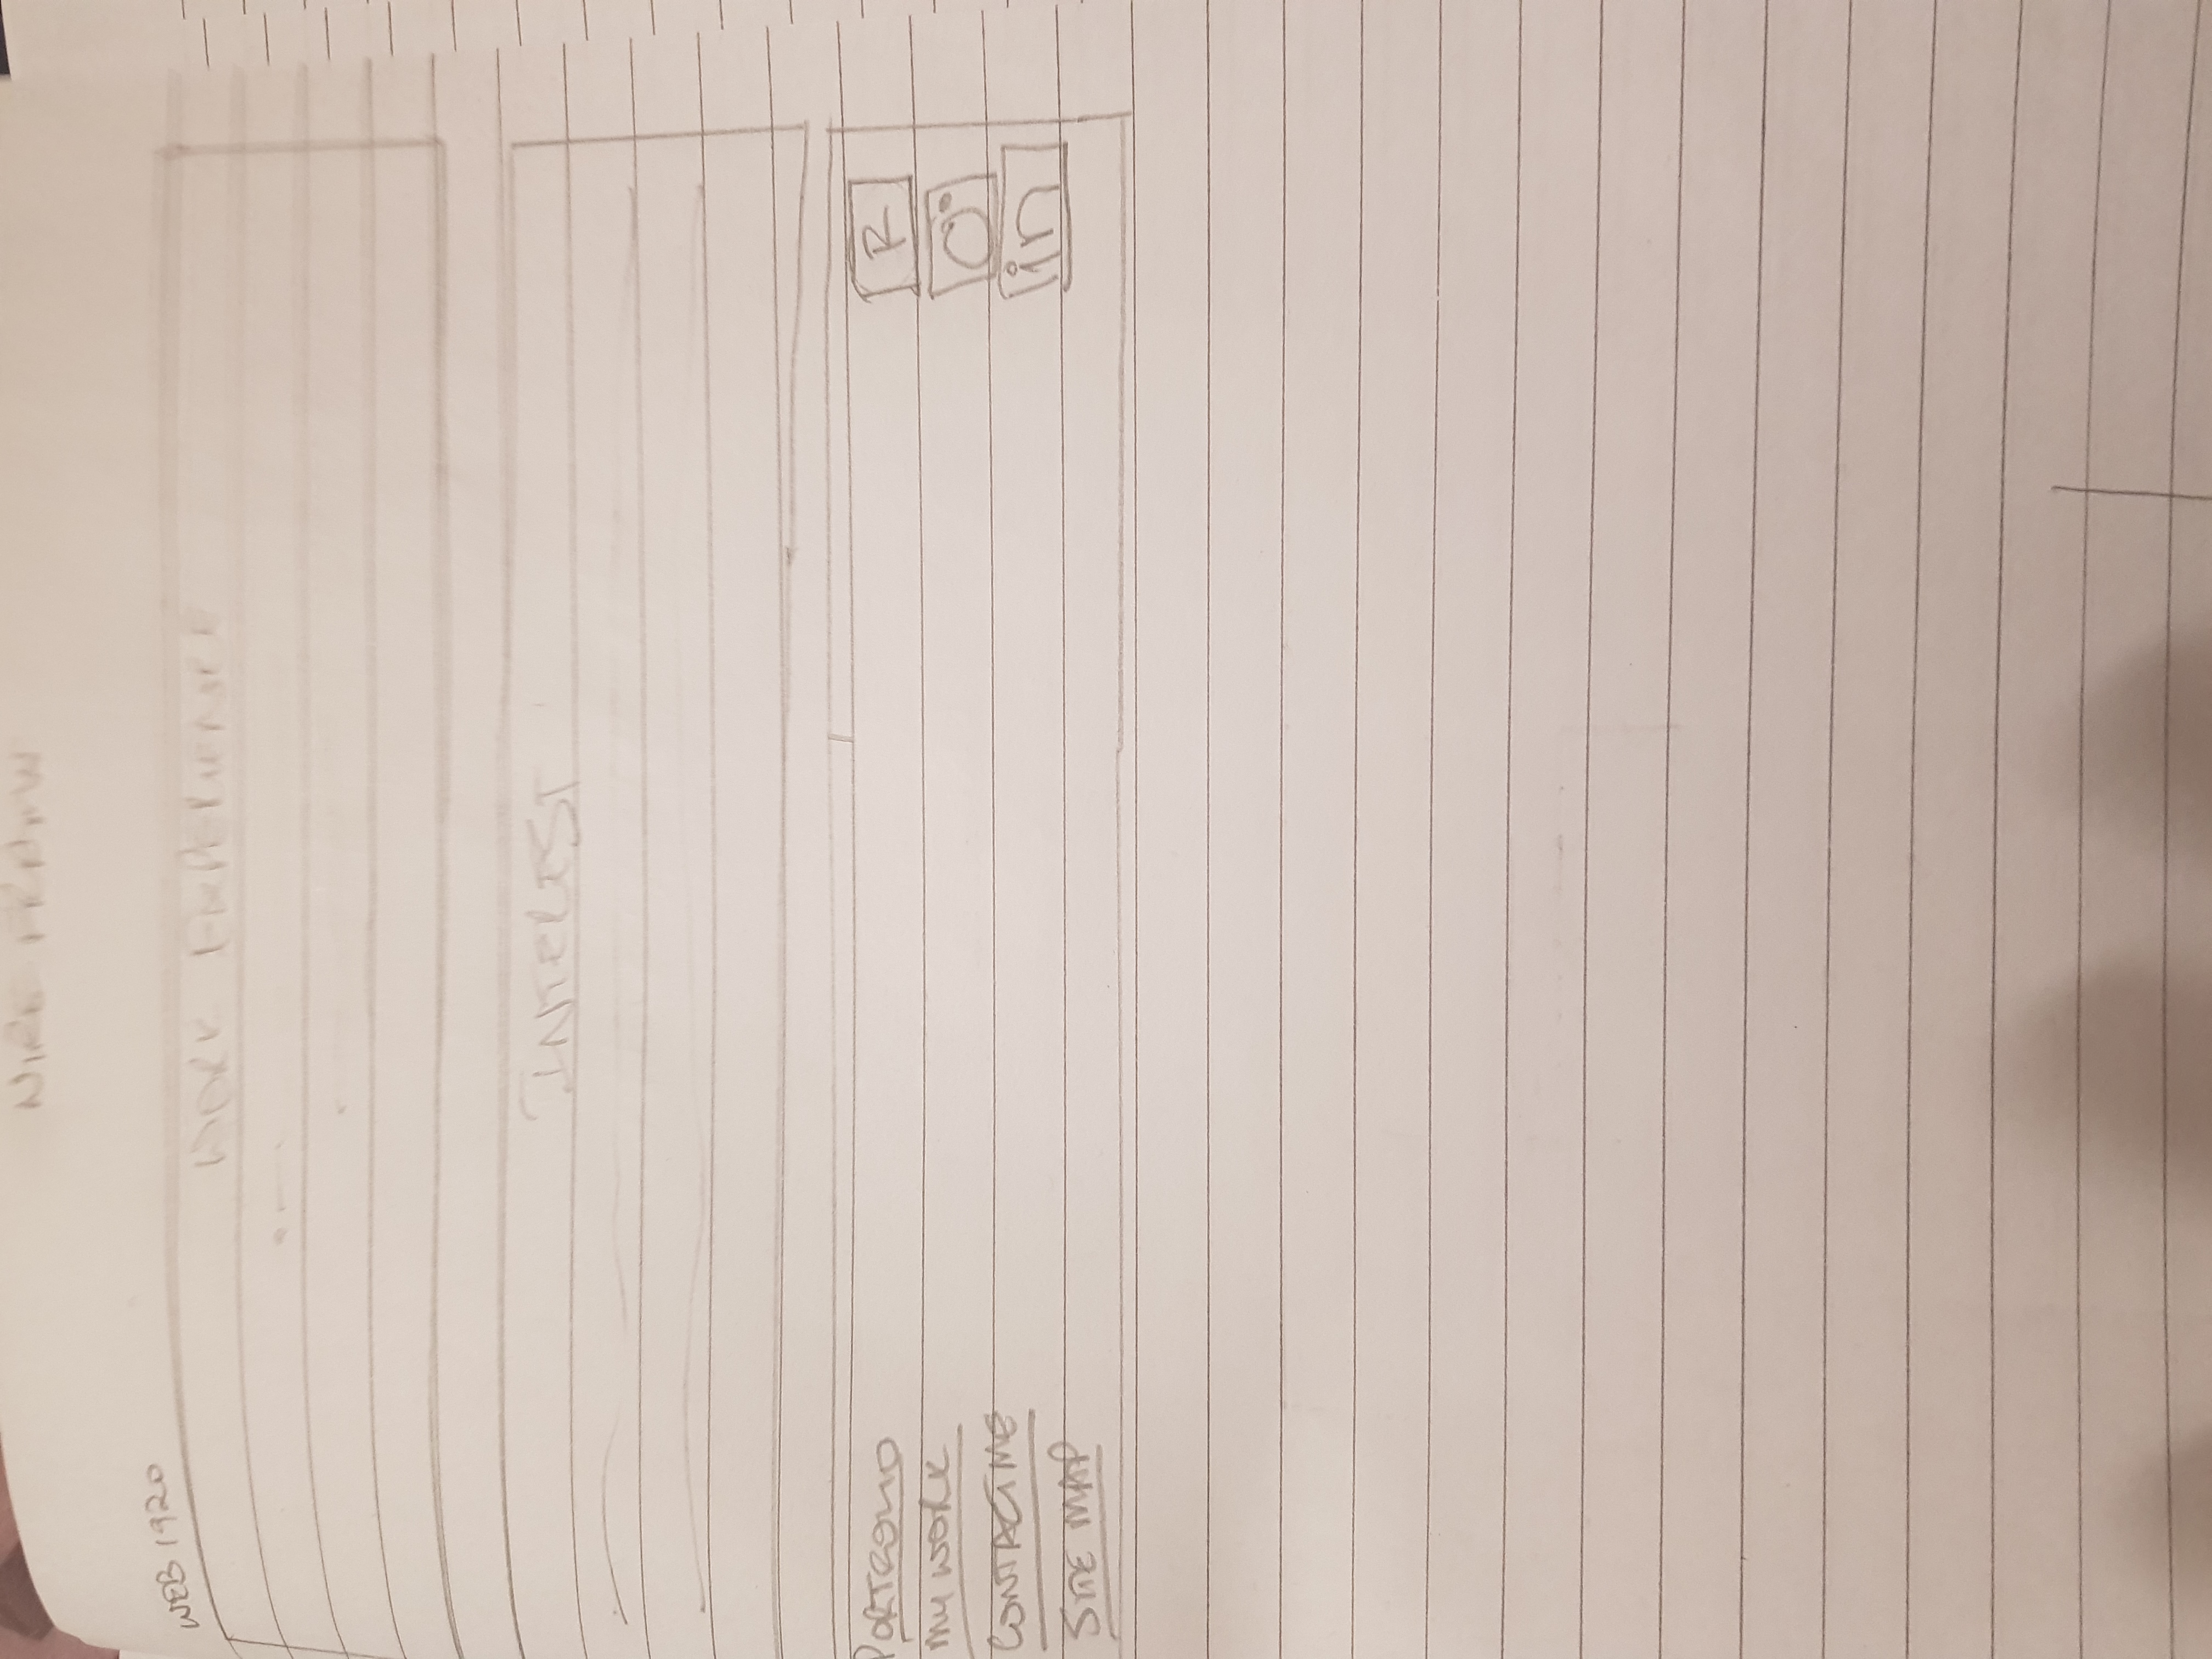 WIRE FRAME
WEB 1920
WORK EXPERIENCE
INTEREST
PORTFOLIO
R
MY WORK
CONTACT ME
in
SITE MAP